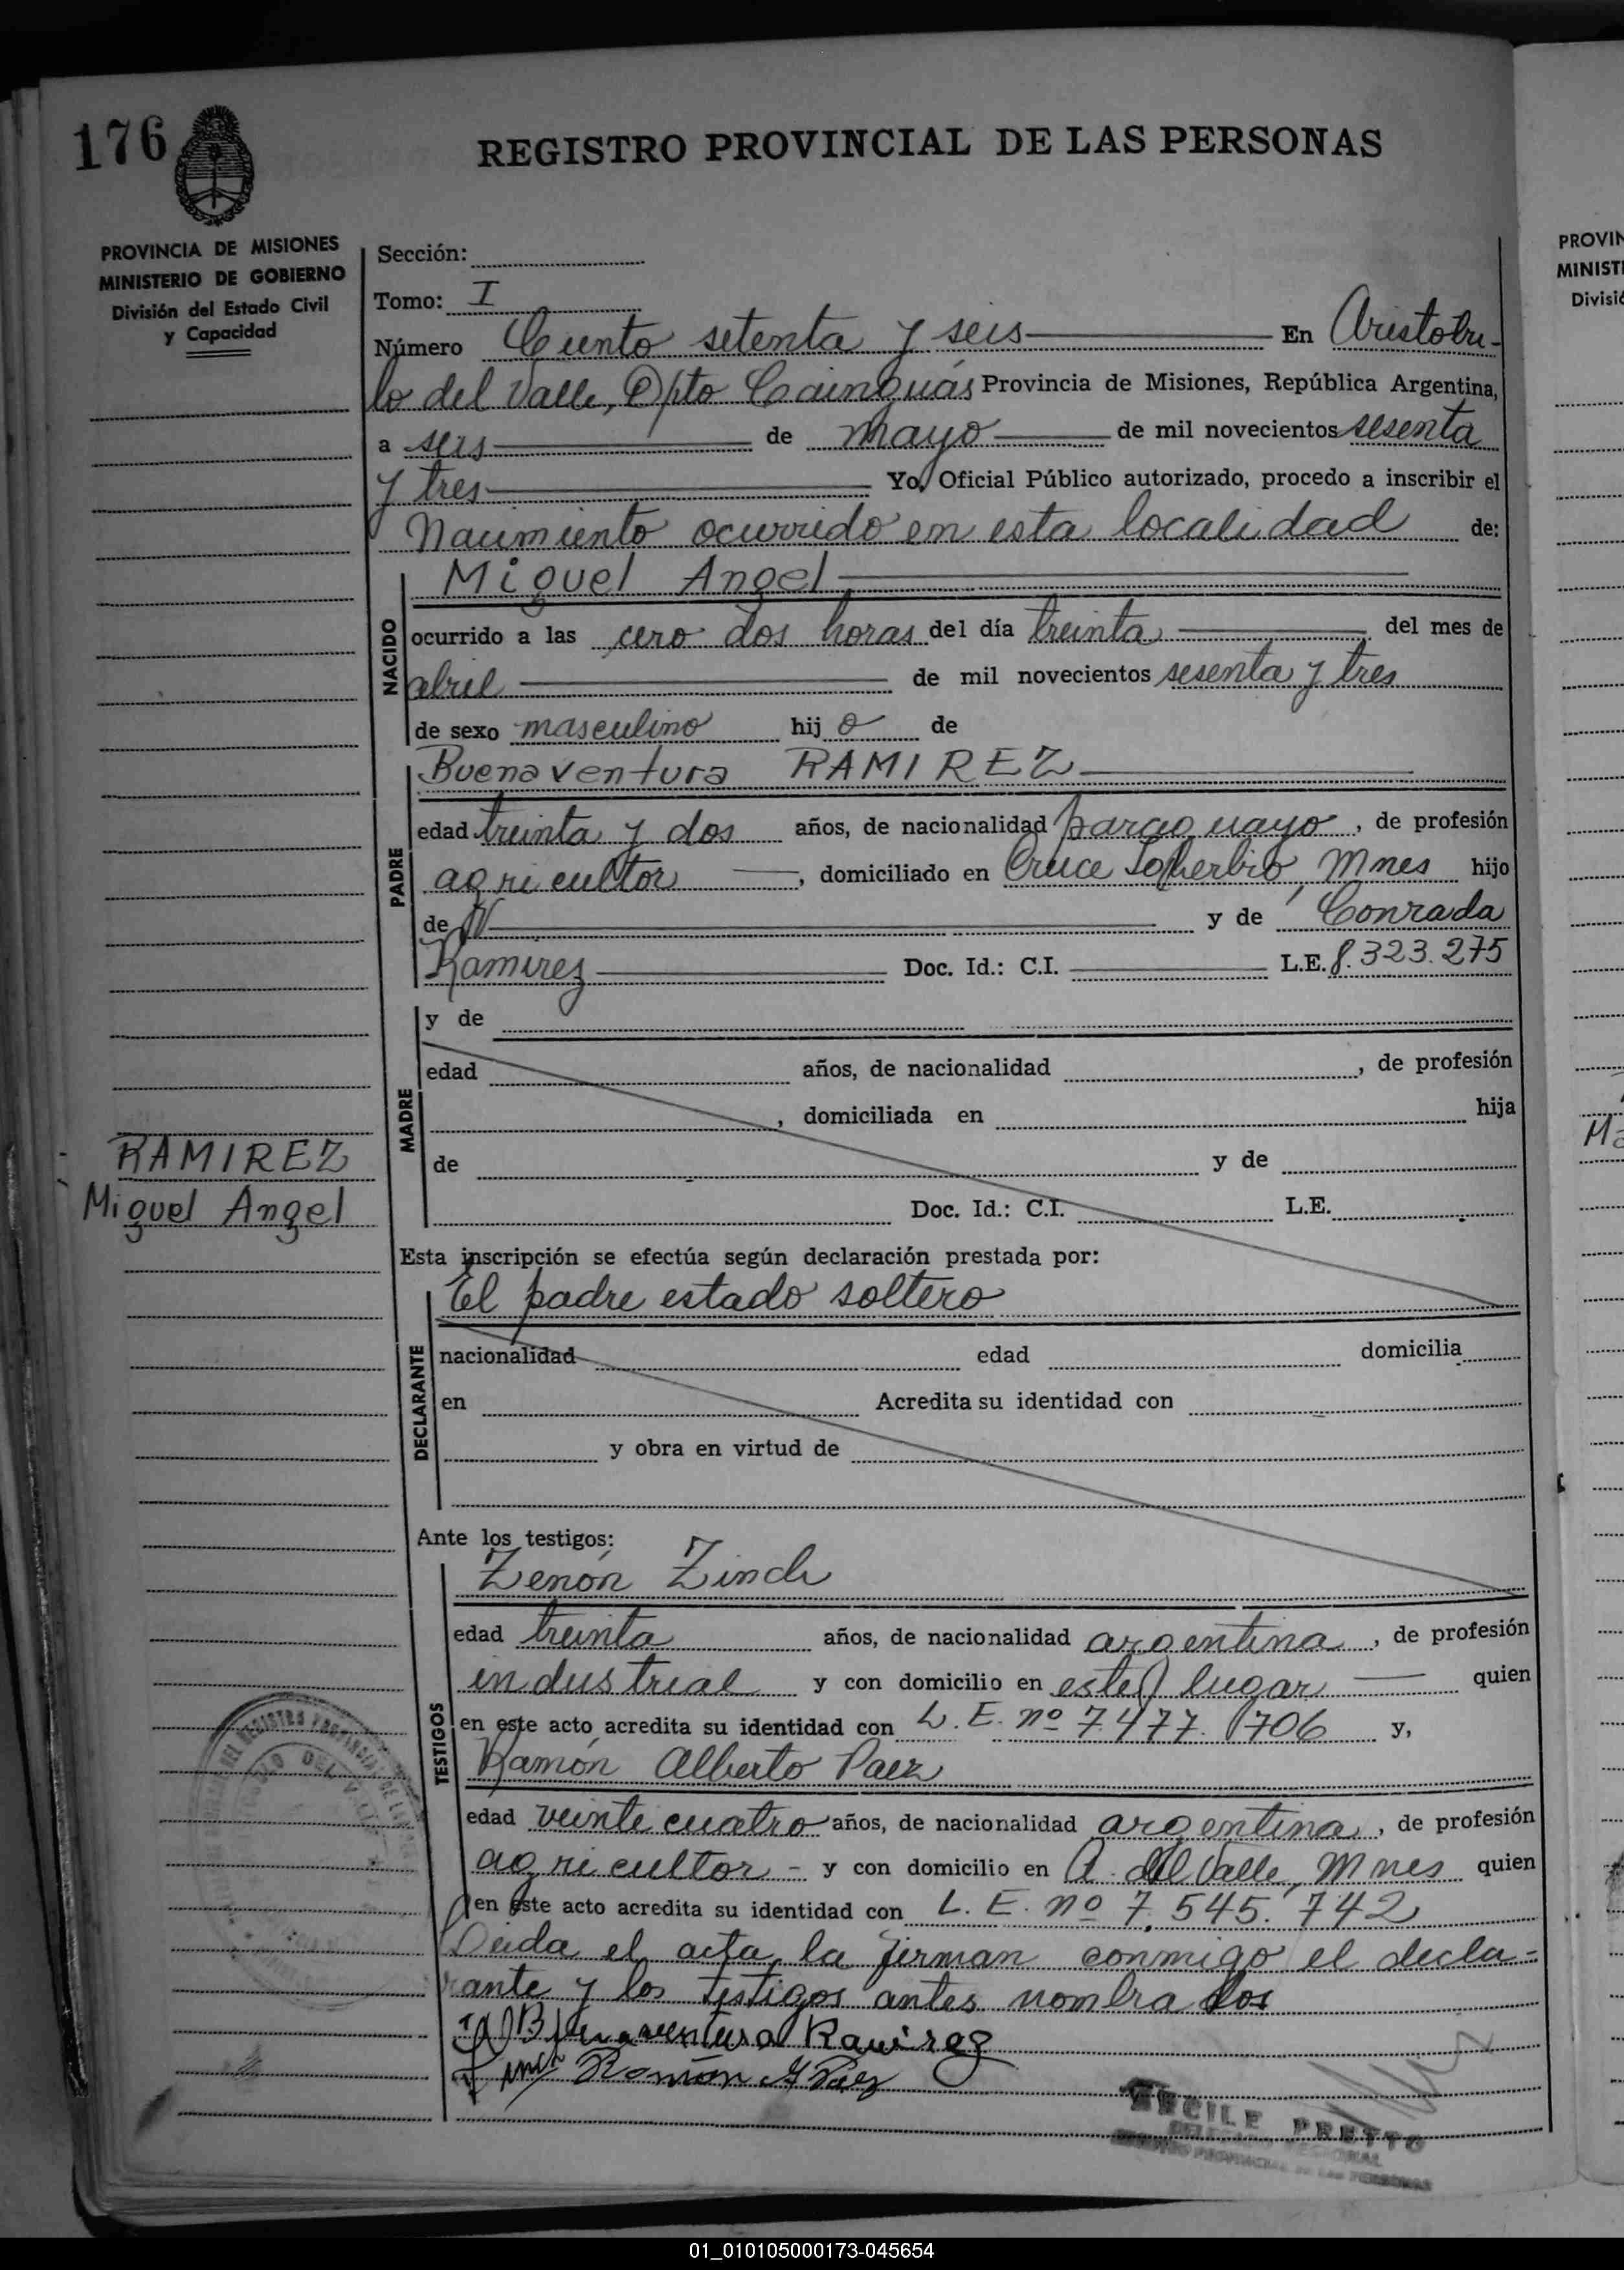 176
REGISTRO PROVINCIAL DE LAS PERSONAS
PROVINCIA DE MISIONES
MINISTERIO DE GOBIERNO
División del Estado Civil
y Capacidad
Sección:
Tomo: I
Número Ciento setenta y seis En Aristobu-
lo del Valle, Dpto Cainguás Provincia de Misiones, República Argentina,
a seis de mayo de mil novecientos sesenta
y tres Yo, Oficial Público autorizado, procedo a inscribir el
Nacimiento ocurrido en esta localidad de:
Miguel Angel
NACIDO
ocurrido a las cero dos horas del día treinta del mes de
abril de mil novecientos sesenta y tres
de sexo masculino hij o de
Buenaventura RAMIREZ
PADRE
edad treinta y dos años, de nacionalidad paraguayo, de profesión
agricultor, domiciliado en Cruce Mnes hijo
de N y de Conrada
Ramirez Doc. Id.: C.I. L.E. 8.323.275
MADRE
y de
edad años, de nacionalidad , de profesión
, domiciliada en hija
de y de
Doc. Id.: C.I. L.E.
RAMIREZ
Miguel Angel
Esta inscripción se efectúa según declaración prestada por:
El padre estado soltero
DECLARANTE
nacionalidad edad domicilia
en Acredita su identidad con
y obra en virtud de
Ante los testigos:
Zenón Zinch
TESTIGOS
edad treinta años, de nacionalidad argentina, de profesión
industrial y con domicilio en este lugar quien
en este acto acredita su identidad con L.E. nº 7.477.706 y,
Ramón Alberto Paez
edad veinte cuatro años, de nacionalidad argentina, de profesión
agricultor - y con domicilio en A. del Valle, Mnes quien
en este acto acredita su identidad con L.E. nº 7.545.742
Leida el acta la firman conmigo el decla=
rante y los testigos antes nombrados
Buenaventura Ramirez
Ramón A Paez
CECILE PRETTO
DELEGADO REGIONAL
REGISTRO PROVINCIAL DE LAS PERSONAS
PROVIN
MINIST
Divisió
Ma
01_010105000173-045654